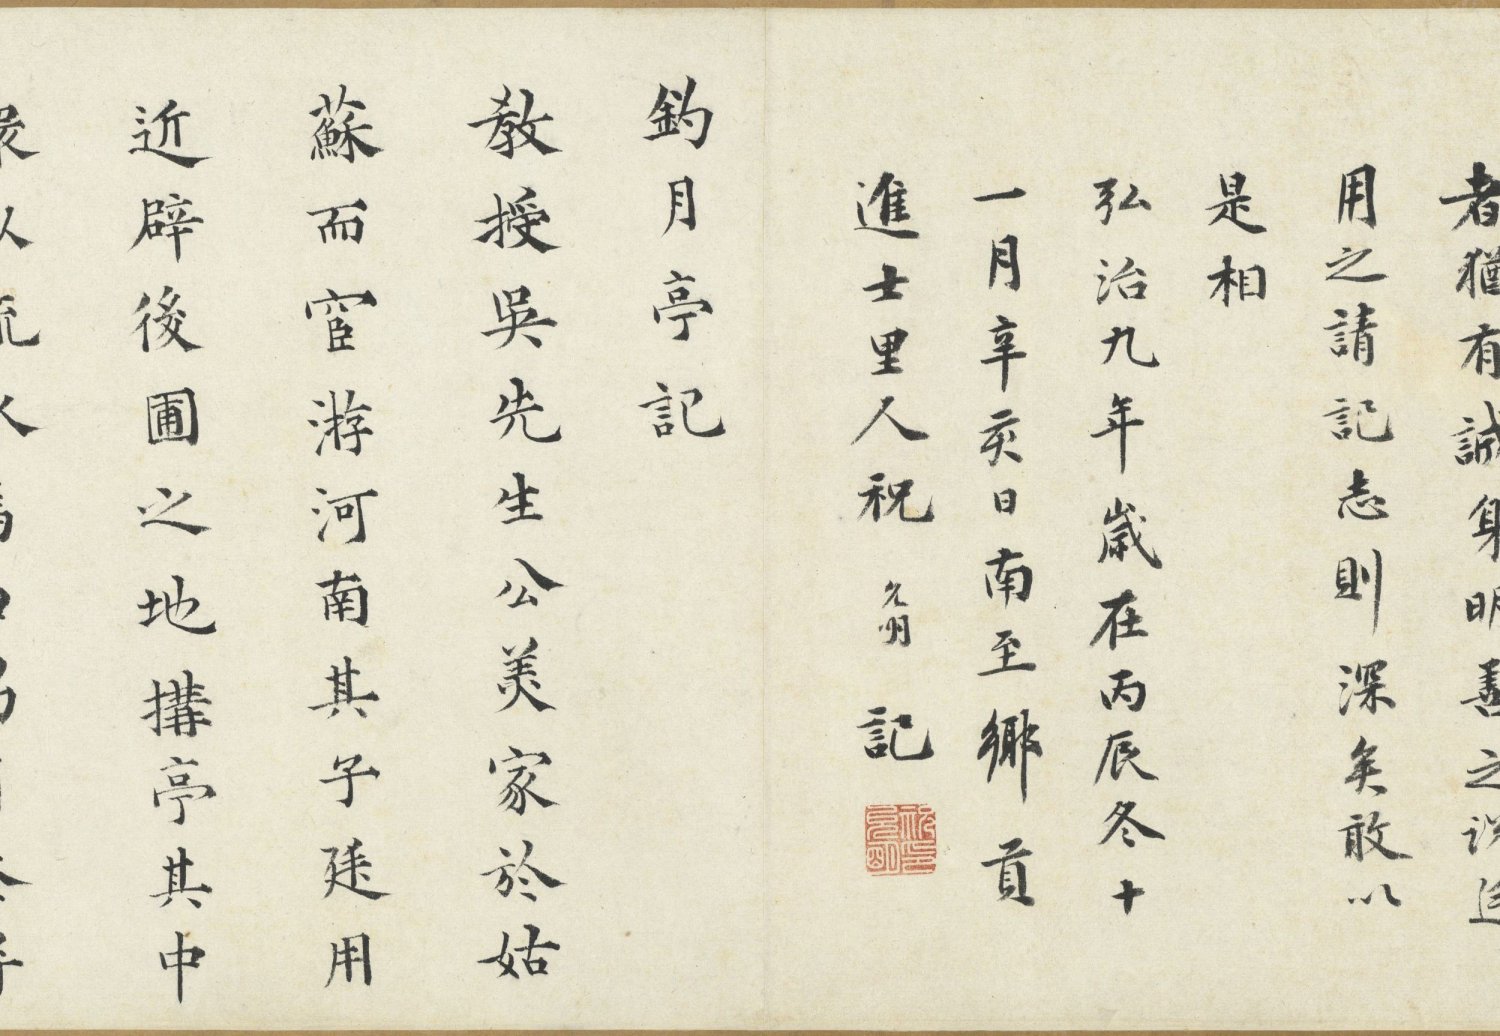 者猶有誠身明善之說廷
用之請記志則深矣敢以
是相
弘治九年歲在丙辰冬十
一月辛亥日南至鄉貢
進士里人祝允明記
釣月亭記
教授吳先生公美家於姑
蘇而宦游河南其子廷用
近辟後圃之地搆亭其中